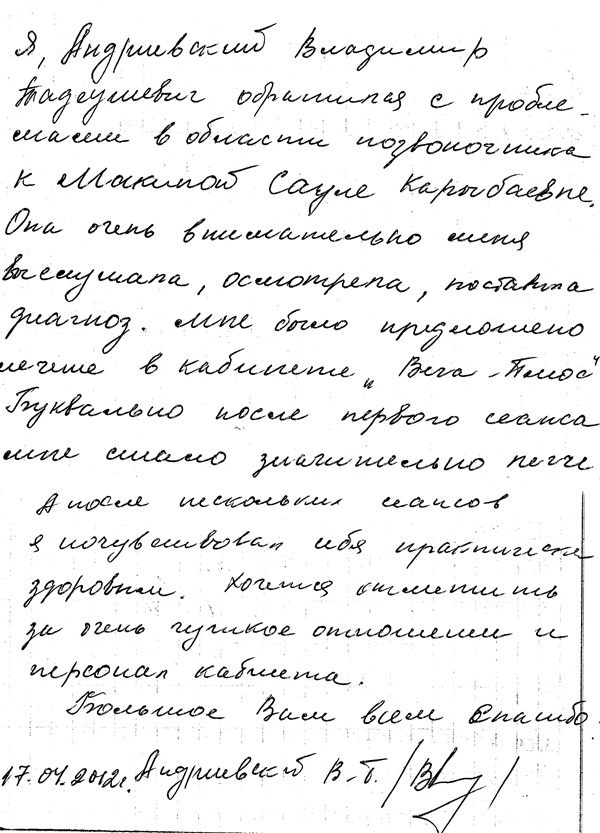 Я, Андриевский Владимир
Тадеушевич обратился с пробле-
мами в области позвоночника
к Макиной Сауле Карыбаевне.
Она очень внимательно меня
выслушала, осмотрела, поставила
диагноз. Мне было предложено
лечение в кабинете „Вега-Плюс"
Буквально после первого сеанса
мне стало значительно легче
А после нескольких сеансов
я почувствовал себя практически
здоровым. Хочется отметить
за очень чуткое отношение и
персонал кабинета.
Большое Вам всем спасибо.
17.04.2012г. Андриевский В.Т.